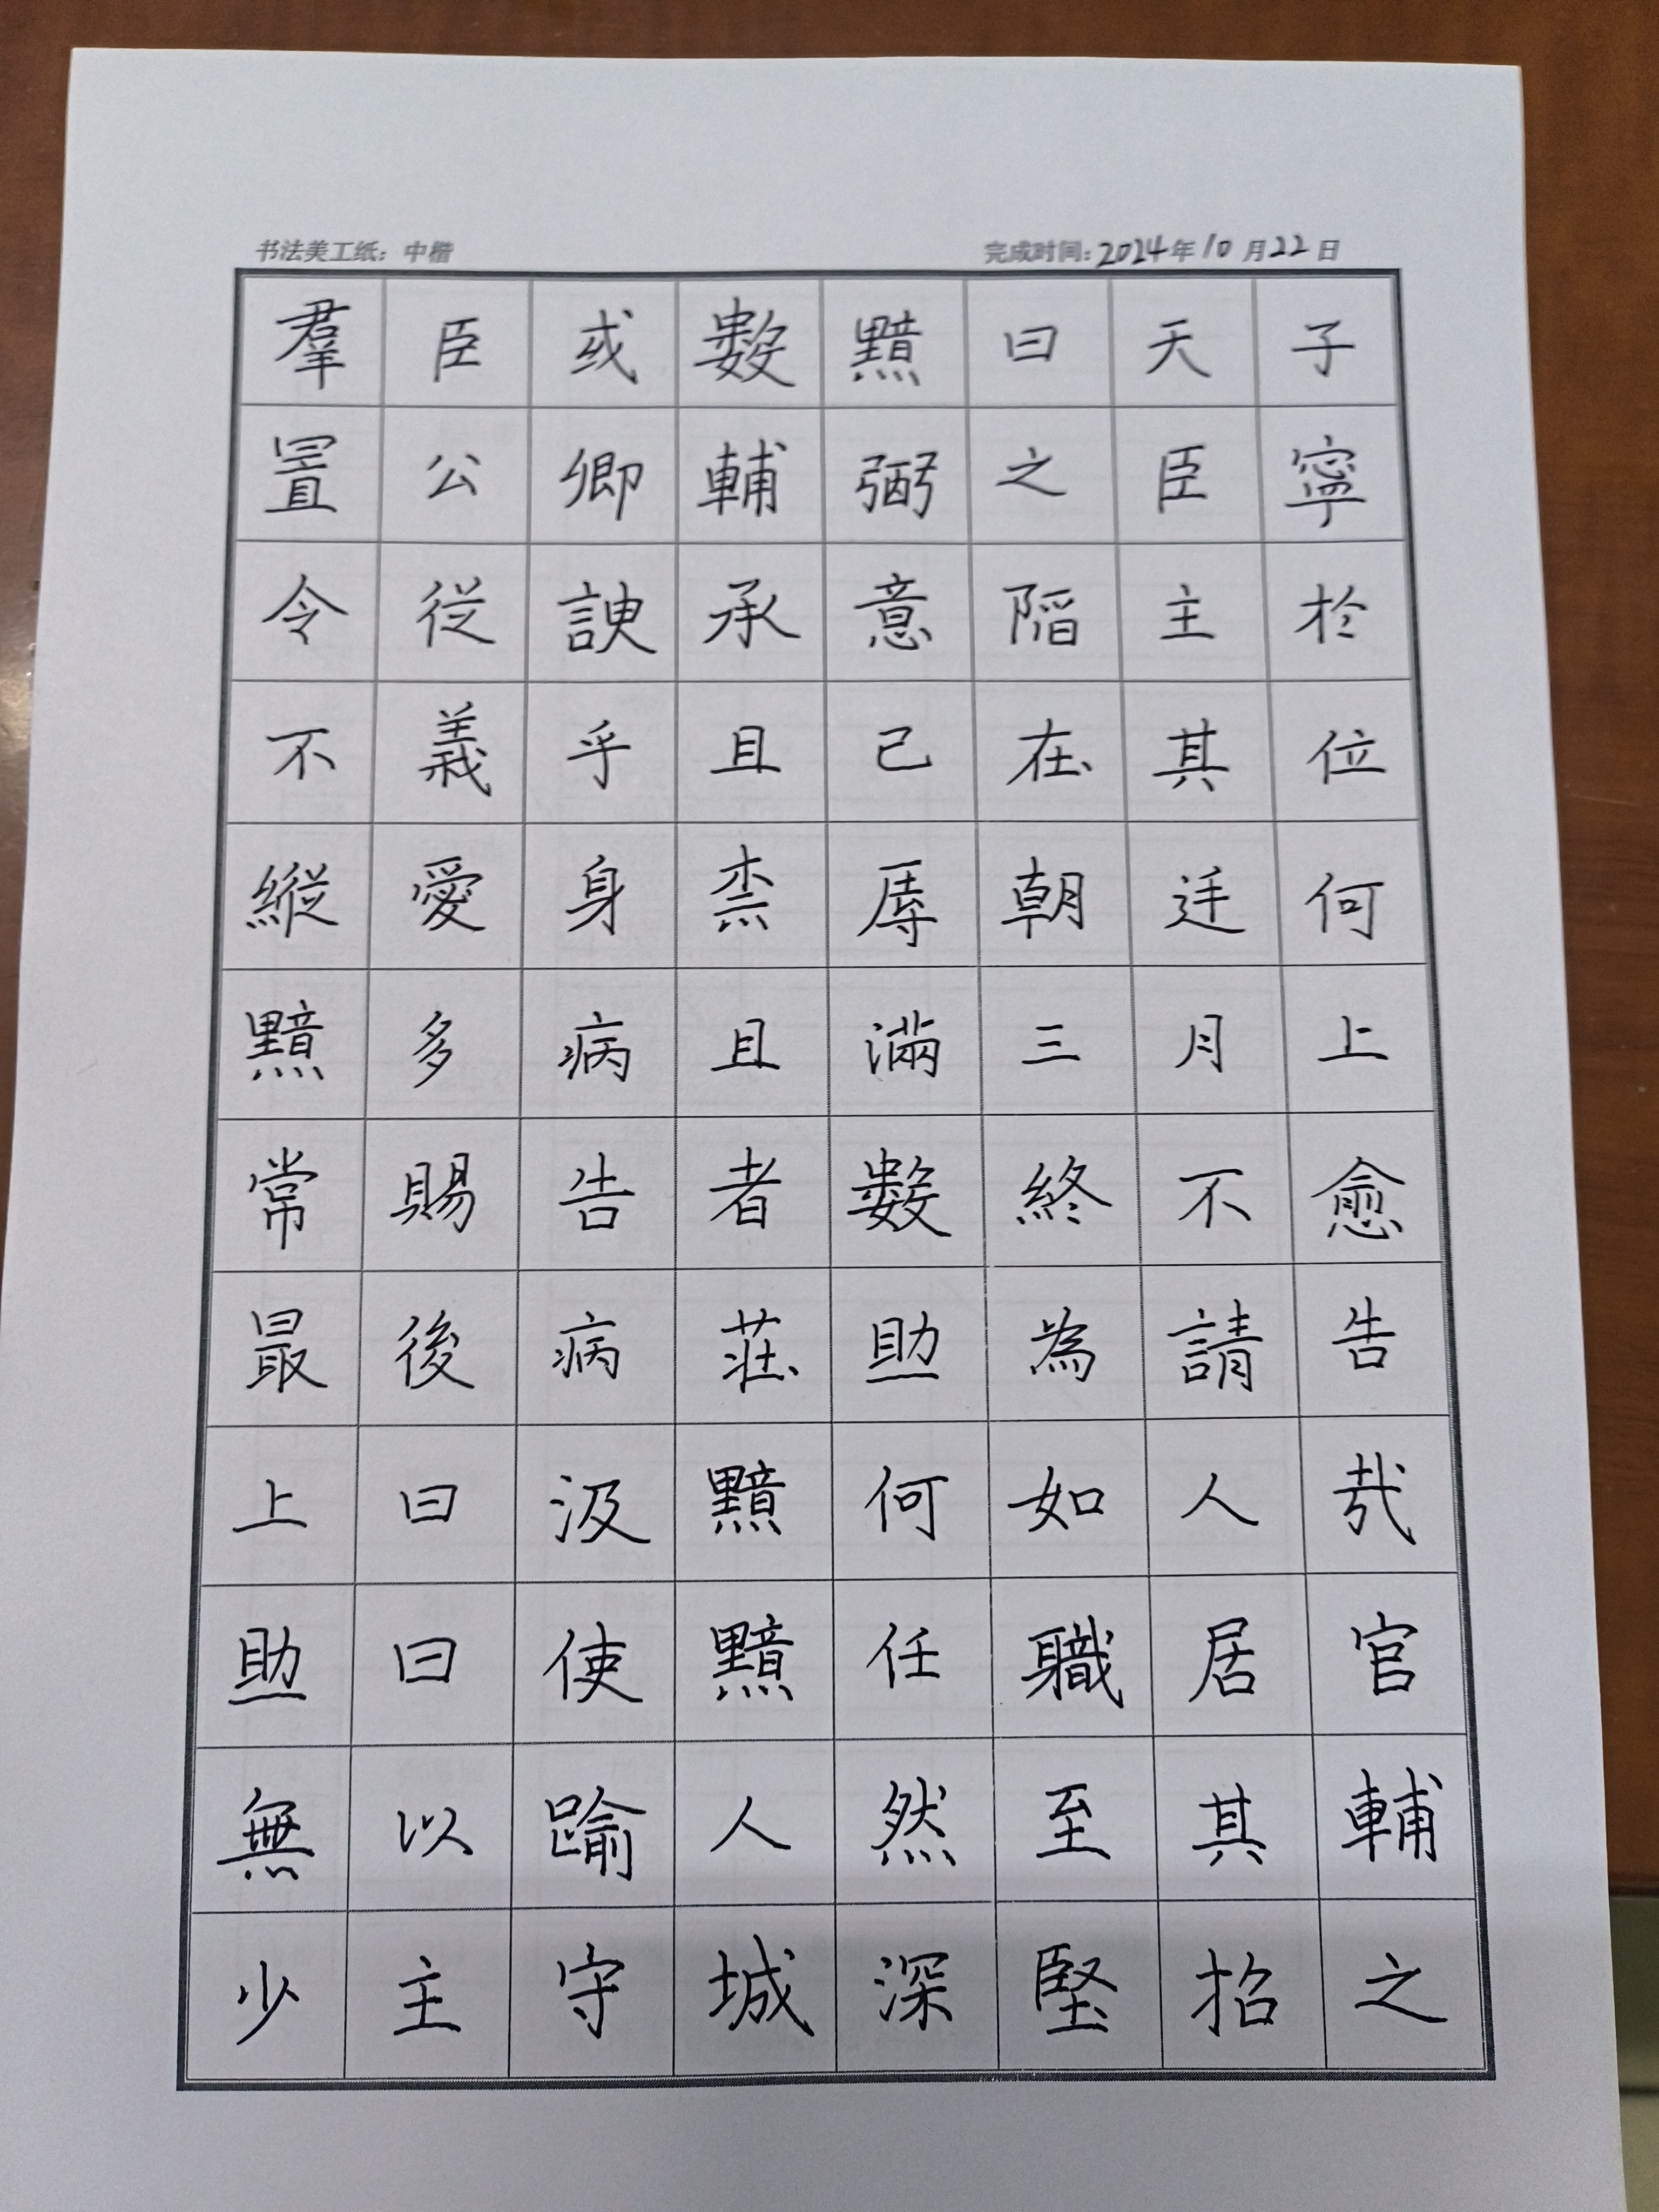 书法美工纸：中楷
完成时间：2024年10月22日
羣臣或數黯曰天子
置公卿輔弼之臣寧
令從諛承意陷主於
不義乎且已在其位
縱愛身柰辱朝廷何
黯多病且滿三月上
常賜告者數終不愈
最後病莊助為請告
上曰汲黯何如人哉
助曰使黯任職居官
無以踰人然至其輔
少主守城深堅招之